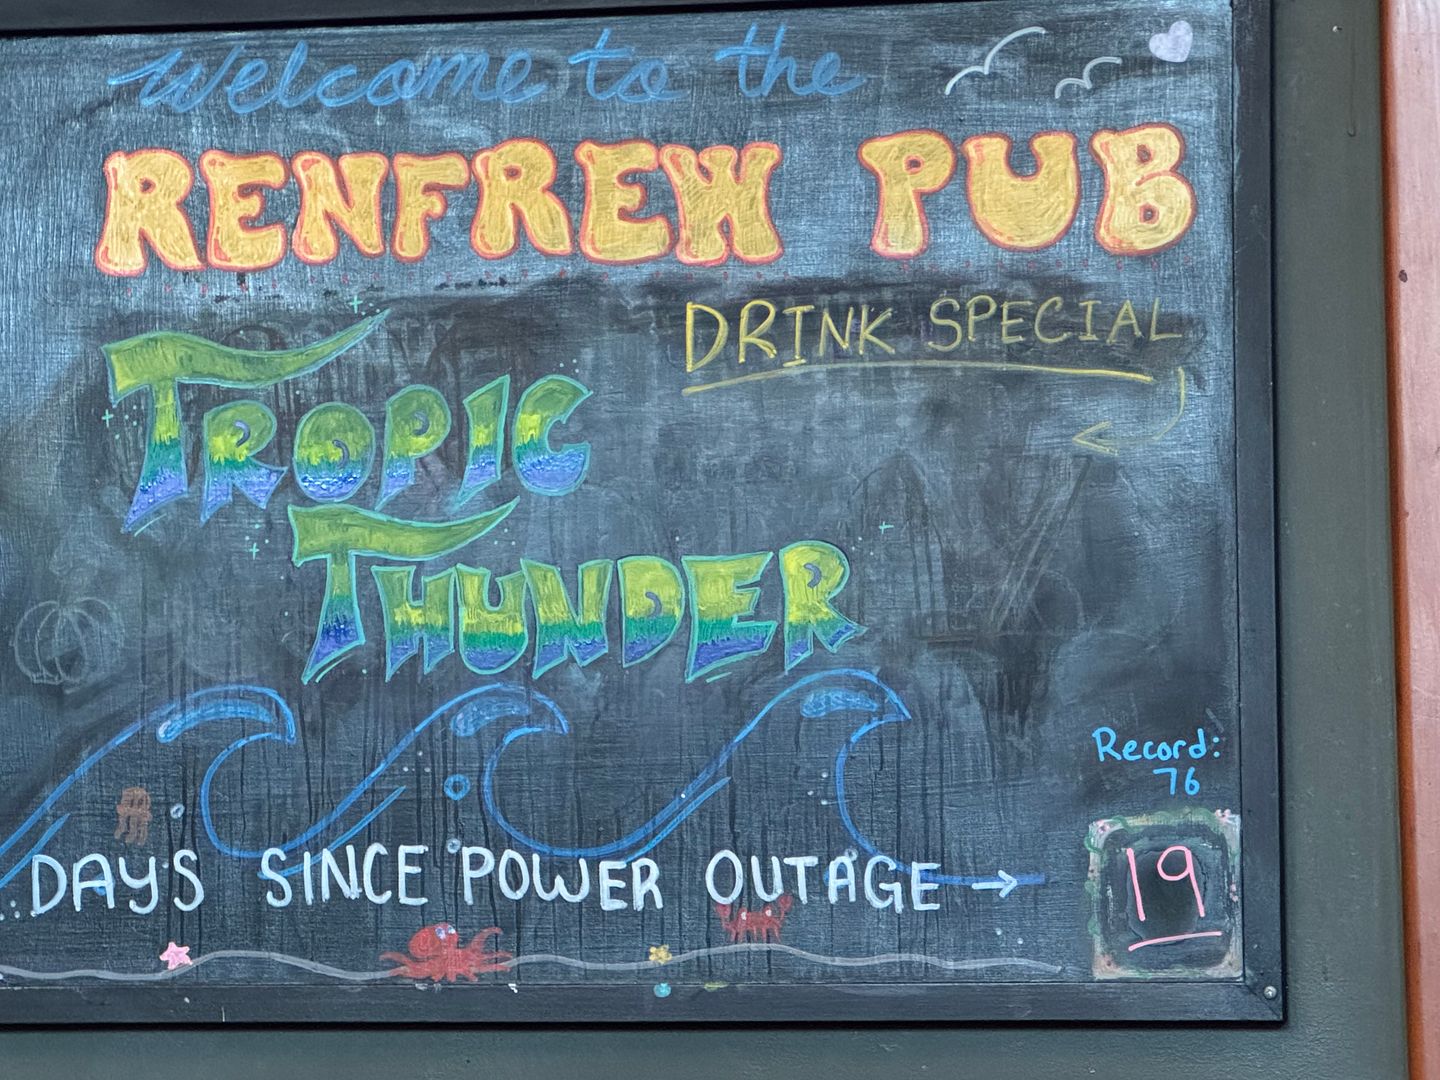 Welcome to the
RENFREW PUB
DRINK SPECIAL
TROPIC
THUNDER
Record:
76
DAYS SINCE POWER OUTAGE → 19